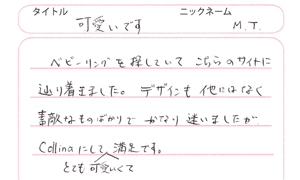 タイトル ニックネーム
可愛いです M.T.
ベビーリングを探していて こちらのサイトに
辿り着きました。デザインも他にはなく
素敵なものばかりで かなり迷いましたが
Collinaにして 満足です。
とても可愛いくて